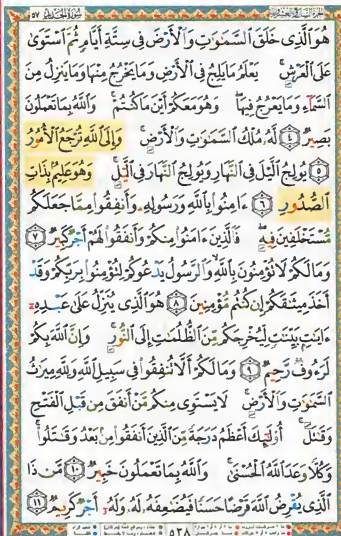 الجزء السابع والعشرون سورة الحديد ٥٧
هُوَ ٱلَّذِى خَلَقَ ٱلسَّمَٰوَٰتِ وَٱلْأَرْضَ فِى سِتَّةِ أَيَّامٍ ثُمَّ ٱسْتَوَىٰ
عَلَى ٱلْعَرْشِ ۚ يَعْلَمُ مَا يَلِجُ فِى ٱلْأَرْضِ وَمَا يَخْرُجُ مِنْهَا وَمَا يَنزِلُ مِنَ
ٱلسَّمَآءِ وَمَا يَعْرُجُ فِيهَا ۖ وَهُوَ مَعَكُمْ أَيْنَ مَا كُنتُمْ ۚ وَٱللَّهُ بِمَا تَعْمَلُونَ
بَصِيرٌ ٤ لَّهُۥ مُلْكُ ٱلسَّمَٰوَٰتِ وَٱلْأَرْضِ ۚ وَإِلَى ٱللَّهِ تُرْجَعُ ٱلْأُمُورُ
٥ يُولِجُ ٱلَّيْلَ فِى ٱلنَّهَارِ وَيُولِجُ ٱلنَّهَارَ فِى ٱلَّيْلِ ۚ وَهُوَ عَلِيمٌۢ بِذَاتِ
ٱلصُّدُورِ ٦ ءَامِنُوا۟ بِٱللَّهِ وَرَسُولِهِۦ وَأَنفِقُوا۟ مِمَّا جَعَلَكُم
مُّسْتَخْلَفِينَ فِيهِ ۖ فَٱلَّذِينَ ءَامَنُوا۟ مِنكُمْ وَأَنفَقُوا۟ لَهُمْ أَجْرٌ كَبِيرٌ ٧
وَمَا لَكُمْ لَا تُؤْمِنُونَ بِٱللَّهِ ۙ وَٱلرَّسُولُ يَدْعُوكُمْ لِتُؤْمِنُوا۟ بِرَبِّكُمْ وَقَدْ
أَخَذَ مِيثَٰقَكُمْ إِن كُنتُم مُّؤْمِنِينَ ٨ هُوَ ٱلَّذِى يُنَزِّلُ عَلَىٰ عَبْدِهِۦٓ
ءَايَٰتٍۭ بَيِّنَٰتٍ لِّيُخْرِجَكُم مِّنَ ٱلظُّلُمَٰتِ إِلَى ٱلنُّورِ ۚ وَإِنَّ ٱللَّهَ بِكُمْ
لَرَءُوفٌ رَّحِيمٌ ٩ وَمَا لَكُمْ أَلَّا تُنفِقُوا۟ فِى سَبِيلِ ٱللَّهِ وَلِلَّهِ مِيرَٰثُ
ٱلسَّمَٰوَٰتِ وَٱلْأَرْضِ ۚ لَا يَسْتَوِى مِنكُم مَّنْ أَنفَقَ مِن قَبْلِ ٱلْفَتْحِ
وَقَٰتَلَ ۚ أُو۟لَٰٓئِكَ أَعْظَمُ دَرَجَةً مِّنَ ٱلَّذِينَ أَنفَقُوا۟ مِنۢ بَعْدُ وَقَٰتَلُوا۟ ۚ
وَكُلًّا وَعَدَ ٱللَّهُ ٱلْحُسْنَىٰ ۚ وَٱللَّهُ بِمَا تَعْمَلُونَ خَبِيرٌ ١٠ مَّن ذَا
ٱلَّذِى يُقْرِضُ ٱللَّهَ قَرْضًا حَسَنًا فَيُضَٰعِفَهُۥ لَهُۥ وَلَهُۥٓ أَجْرٌ كَرِيمٌ ١١
٥٣٨